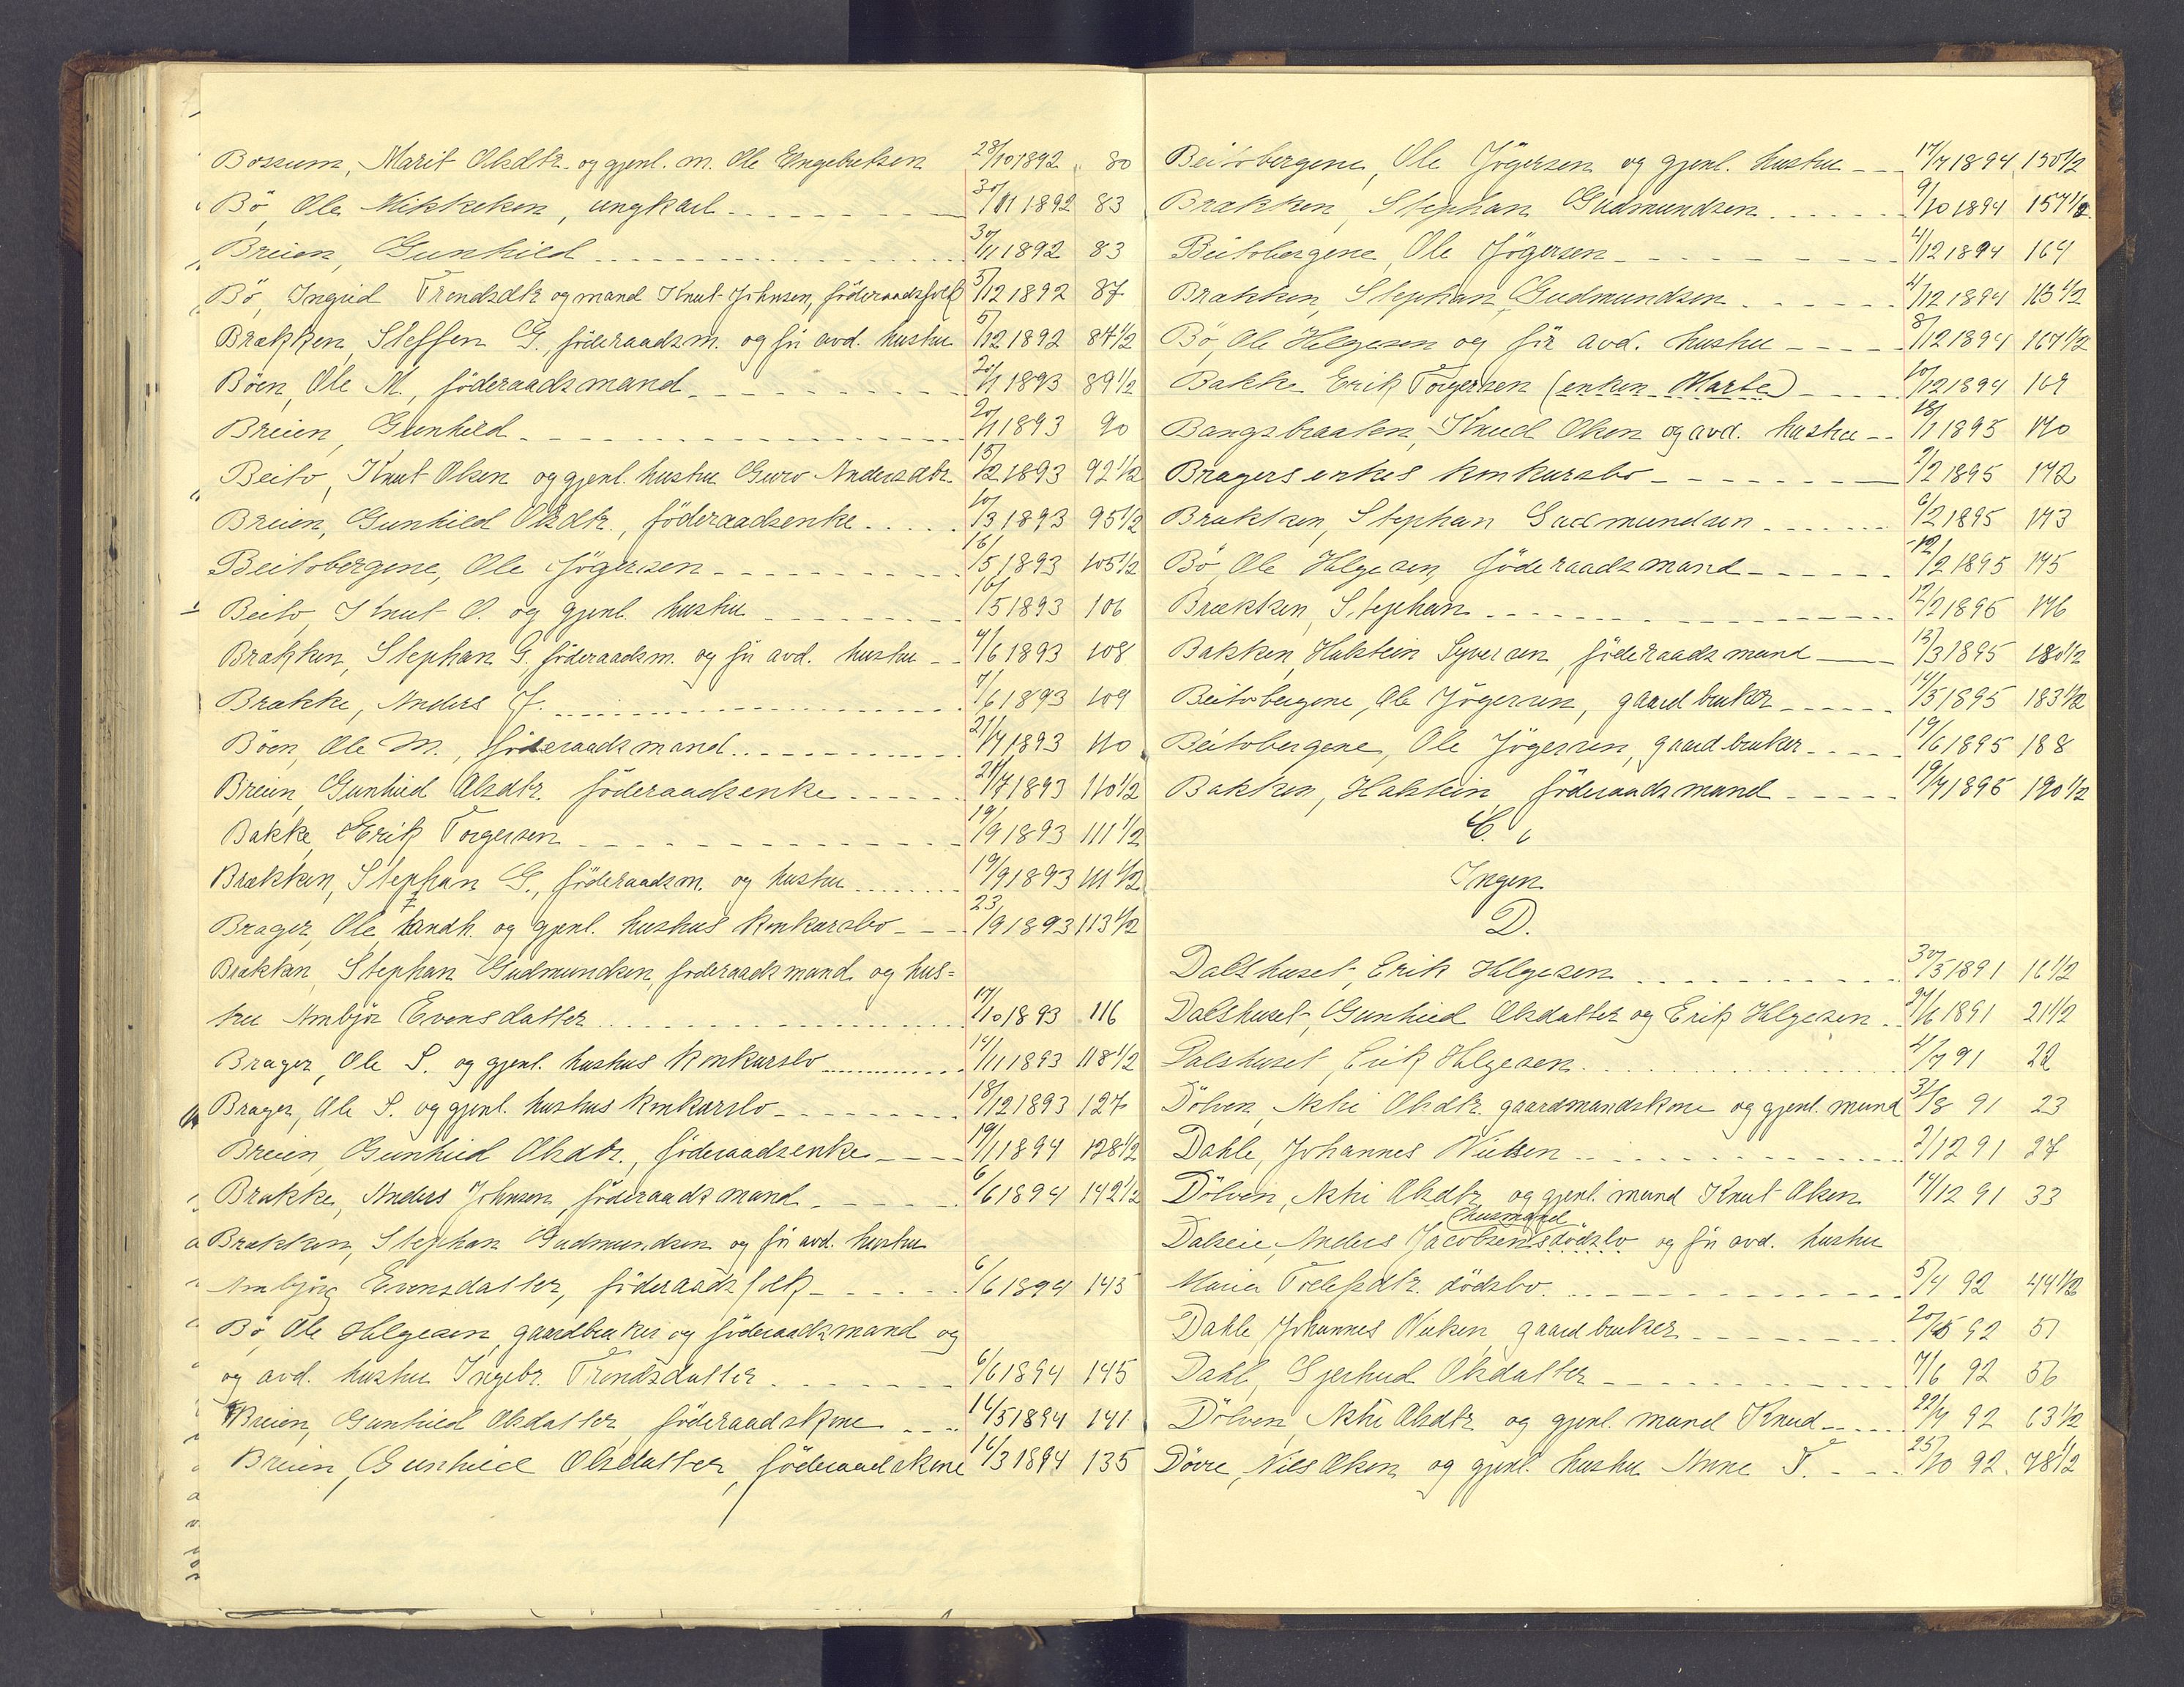 Bossum, Marit Olsdtr. og gjenl. m. Ole Engebretsen 28/10 1892 80
Bö, Ole Mikkelsen, ungkarl 30/11 1892 83
Breien, Gunhild 30/11 1892 83
Bö, Ingrid Trondsdtr og mand Knut Johnsen, föderaadsfolk 5/12 1892 87
Brækken, Steffen G., föderaadsm. og för avd. hustru 5/12 1892 87 1/2
Böen, Ole M., föderaadsmand 20/1 1893 89 1/2
Breien, Gunhild 20/1 1893 90
Beito, Knut Olsen og gjenl. hustru Guro Andersdtr. 15/2 1893 92 1/2
Breien, Gunhild Olsdtr., föderaadsenke 10/3 1893 95 1/2
Beitobergene, Ole Jögersen 16/5 1893 105 1/2
Beito, Knut O. og gjenl. hustru 16/5 1893 106
Brækken, Stephan G. föderaadsm. og för avd. hustru 7/6 1893 108
Brække, Anders J. 7/6 1893 109
Böen, Ole M., föderaadsmand 21/7 1893 110
Breien, Gunhild Olsdtr. föderaadsenke 21/7 1893 110 1/2
Bakke, Erik Torgersen 19/9 1893 111 1/2
Brækken, Stephan G., föderaadsm. og hustru 19/9 1893 111 1/2
Brager, Ole, landh. og gjenl. hustrus konkursbo 23/9 1893 113 1/2
Brækken, Stephan Gudmundsen, föderaadsmand og hus=
tru Ambjör Evensdatter 17/10 1893 116
Brager, Ole S. og gjenl. hustrus konkursbo 14/11 1893 118 1/2
Brager, Ole S. og gjenl. hustrus konkursbo 18/12 1893 127
Breien, Gunhild Olsdtr., föderaadsenke 19/1 1894 128 1/2
Brække, Anders Johnsen, föderaadsmand 6/6 1894 142 1/2
Brækken, Stephan Gudmundsen og för avd. hustru
Ambjörg Evensdatter, föderaadsfolk 6/6 1894 143
Bö, Ole Helgesen, gaardbruker og föderaadsmand og
og avd. hustru Ingebr. Trondsdatter 6/6 1894 145
Breien, Gunhild Olsdatter, föderaadskone 16/5 1894 141
Breien, Gunhild Olsdatter, föderaadskone 16/3 1894 135
Beitobergene, Ole Jögersen og gjenl. hustru 17/7 1894 150 1/2
Brækken, Stephan Gudmundsen 9/10 1894 157 1/2
Beitobergene, Ole Jögersen 4/12 1894 164
Brækken, Stephan Gudmundsen 4/12 1894 165 1/2
Bö, Ole Helgesen og för avd. hustru 8/12 1894 167 1/2
Bakke Erik Torgersen (enken Marte) 10/12 1894 169
Bangsbraaten, Knud Olsen og avd. hustru 18/1 1895 170
Bragers enkes konkursbo 2/2 1895 172
Brækken, Stephan Gudmundsen 6/2 1895 173
Bö, Ole Helgesen, föderaadsmand 12/2 1895 175
Brækken, Stephan 12/2 1895 176
Bakken, Halstein Syversen, föderaadsmand 13/3 1895 180 1/2
Beitobergene, Ole Jögersen, gaardbruker 14/5 1895 183 1/2
Beitobergene, Ole Jögersen, gaardbruker 19/6 1895 188
Bakken, Halstein föderaadsmand 19/7 1895 190 1/2
C.
Ingen
D.
Dalshuset, Erik Helgesen 30/5 1891 16 1/2
Dalshuset, Gunhild Olsdatter og Erik Helgesen 27/6 1891 21 1/2
Dalshuset, Erik Helgesen 4/7 91 22
Dölven, Astri Olsdtr. gaardmandskone og gjenl. mand 31/8 91 23
Dahle, Johannes Nielsen 2/12 91 27
Dölven, Astri Olsdtr og gjenl. mand Knut Olsen 14/12 91 33
husmand
Dalseie, Anders Jacobsens dödsbo og för avd. hustru
Maria Trelsdtr. dödsbo. 5/4 92 44 1/2
Dahle, Johannes Nielsen, gaardbruker 20/5 92 51
Dahl, Gjertrud Olsdatter 7/6 92 56
Dölven, Astri Olsdtr og gjenl. mand Knud 22/7 92 63 1/2
Dövre, Nils Olsen og gjenl. hustru Anne T. 25/10 92. 78 1/2